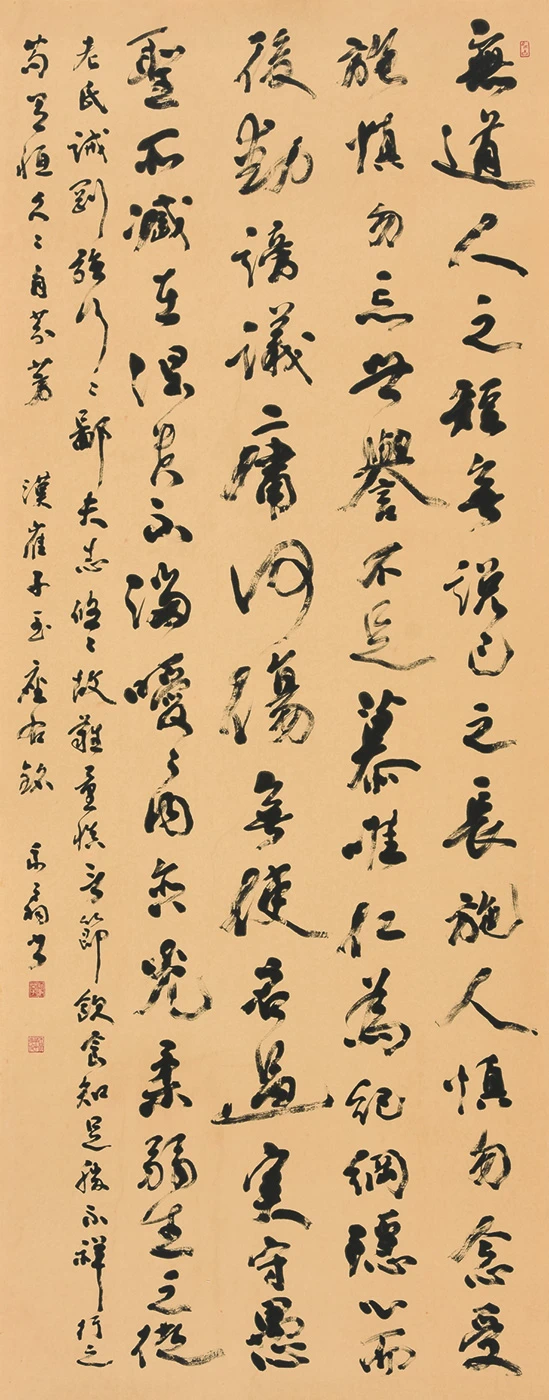 無道人之短無說己之長施人慎勿念受
施慎勿忘世譽不足慕唯仁為紀綱隱心而
後動謗議庸何傷無使名過實守愚
聖所臧在涅貴不淄曖〻內含光柔弱生之徒
老氏誡剛強行〻鄙夫志悠〻故難量慎言節飲食知足勝不祥行之
苟有恒久〻自芬芳 漢崔子玉座右銘